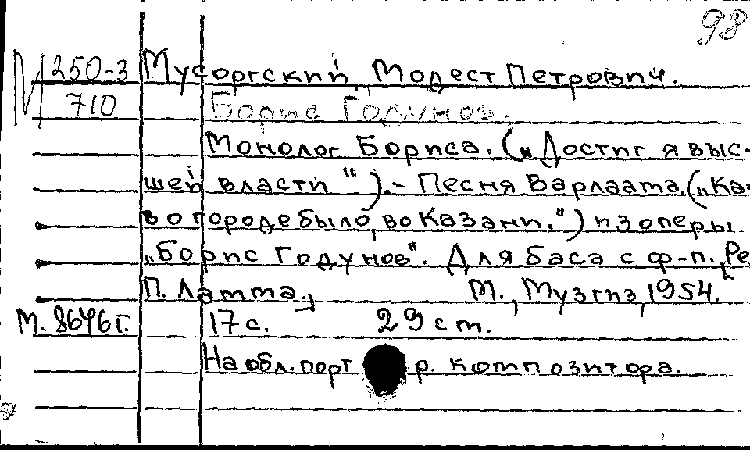 98
М 250-3 Мусоргский, Модест Петрович.
710 Борис Годунов.
Монолог Бориса. („Достиг я выс-
шей власти"). - Песня Варлаама. („Ка
в о городе было, во Казани.") из оперы
„Борис Годунов". Для баса с ф-п., Ре
П. Ламма., М., Музгиз, 1954.
М. 8676г. 17 с. 29 см.
На обл. порт р. композитора.